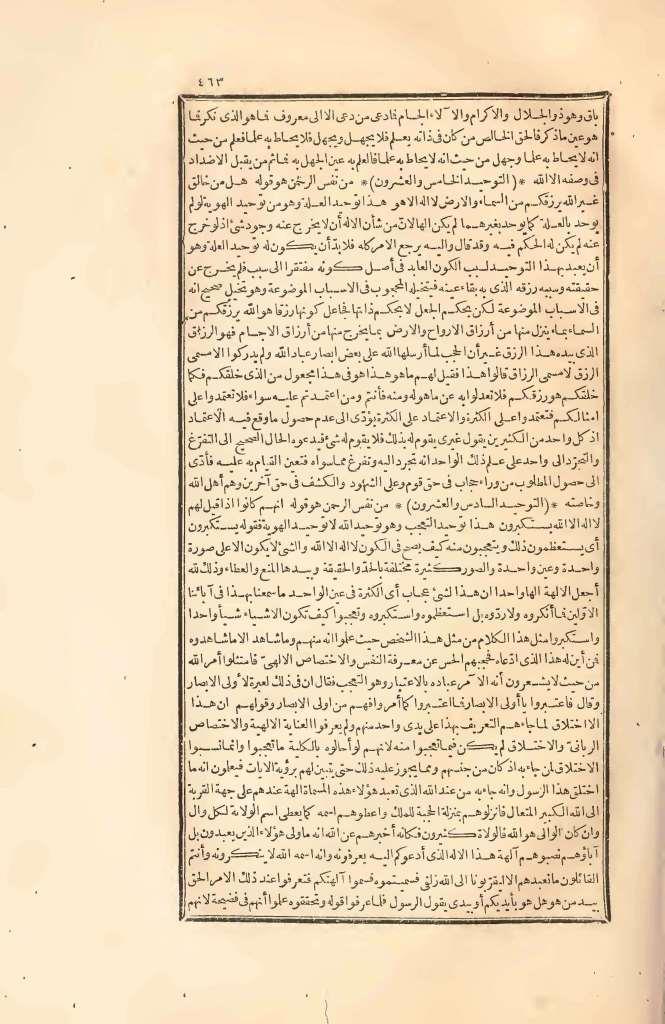 ٤٦٣
باق وهو ذو الجلال والاكرام والآلاء الجسام فما دعى من دعى الا الى معروف فما هو الذى نكر فما
هو عين ما ذكر فالحق الخالص من كان فى ذاته يعلم فلا يجهل ويجهل فلا يحاط به علما فعلم من حيث
انه لا يحاط به علما وجهل من حيث انه لا يحاط به علما فالعلم به عين الجهل به فما ثم من يقبل الاضداد
فى وصفه الا الله * (التوحيد الخامس والعشرون) * من نفس الرحمن هو قوله هل من خالق
غير الله يرزقكم من السماء والارض لا اله الا هو هذا توحيد العلة وهو من توحيد الهوية لو لم
يوحد بالعلة كما يوحد بغيرها لم يكن الها لان من شأن الاله أن لا يخرج عنه وجود شئ اذ لو خرج
عنه لم يكن له الحكم فيه وقد قال واليه يرجع الامر كله فلا بد أن يكون له توحيد العلة وهو
أن يعبد بهذا التوحيد لسبب لكون العابد فى أصل كونه مفتقرا الى سبب فلم يخرج عن
حقيقته وسببه رزقه الذى به بقاء عينه فيتخيله المحجوب فى الاسباب الموضوعة وهو تخيل صحيح انه
فى الاسباب الموضوعة لكن بحكم الجعل لا بحكم ذاتها فجاعل كونها رزقا هو الله يرزقكم من
السماء بما ينزل منها من أرزاق الارواح والارض بما يخرج منها من أرزاق الاجسام فهو الرزاق
الذى بيده هذا الرزق غير أن الحجب لما أرسلها الله على بعض ابصار عباد الله ولم يدركوا الا مسمى
الرزق لا مسمى الرزاق قالوا هذا فقيل لهم ما هو هذا هو فى هذا مجعول من الذى خلقكم فكما
خلقكم هو رزقكم فلا تعدلوا به عن ما هو له ومنه فأنتم ومن اعتمدتم عليه سواء فلا تعتمدوا على
امثالكم فتعتمدوا على الكثرة والاعتماد على الكثرة يؤدى الى عدم حصول ما وقع فيه الاعتماد
اذ كل واحد من الكثيرين يقول غيرى يقوم له بذلك فلا يقوم له شئ فيدعوه الحال الصحيح الى التفرغ
والتجرد الى واحد على علم ذلك الواحد انه تجرد اليه وتفرغ مما سواه فتعين القيام به عليه فأدى
الى حصول المطلوب من وراء حجاب فى حق قوم وعلى الشهود والكشف فى حق آخرين وهم أهل الله
وخاصته * (التوحيد السادس والعشرون) * من نفس الرحمن هو قوله انهم كانوا اذا قيل لهم
لا اله الا الله يستكبرون هذا توحيد التعجب وهو توحيد الله لا توحيد الهوية فقوله يستكبرون
أى يستعظمون ذلك ويتعجبون منه كيف يصح فى الكون لا اله الا الله والشئ لا يكون الا على صورة
واحدة وعين واحدة والصور كثيرة مختلفة بالحد والحقيقة وبيدها المنع والعطاء وذلك لله
أجعل الالهة الها واحدا ان هذا لشئ عجاب أى الكثرة فى عين الواحد ما سمعنا بهذا فى آبائنا
الاولين فما أنكروه ولا ردوه بل استعظموه واستكبروه وتعجبوا كيف تكون الاشياء شيأ واحدا
واستكبروا مثل هذا الكلام من مثل هذا الشخص حيث علموا انه منهم وما شاهد الا ما شاهدوه
فمن أين له هذا الذى ادعاه فحجبهم الحس عن معرفة النفس والاختصاص الالهى فامتثلوا أمر الله
من حيث لا يشعرون أنه الآمر عباده بالاعتبار وهو التعجب فقال ان فى ذلك لعبرة لاولى الابصار
وقال فاعتبروا يا أولى الابصار فما اعتبروا كما أمروا فهم من اولى الابصار وقولهم ان هذا
الا اختلاق لما جاءهم التعريف بهذا على يدى واحد منهم ولم يعرفوا العناية الالهية والاختصاص
الربانى والاختلاق لم يكن فيما تعجبوا منه لانهم لو أحالوه بالكلية ما تعجبوا وانما نسبوا
الاختلاق لمن جاء به اذ كان من جنسهم ومما يجوز عليه ذلك حتى يتبين لهم برؤية الآيات فيعلون انه ما
اختلق هذا الرسول وانه جاء به من عند الله الذى تعبد هؤلاء هذه المسماة الهة عندهم على جهة القربة
الى الله الكبير المتعال فانزلوهم بمنزلة الحجبة للملك واعطوهم اسمه كما يعطى اسم الولاية لكل وال
وان كان الوالى هو الله فالولاة كثيرون فكانه أخبرهم عن الله انه ما ولى هؤلاء الذين يعبدون بل
آباؤهم نصبوهم آلهة هذا الاله الذى أدعوكم اليه يعرفونه وانه اسمه الله لا ينكرونه وأنتم
القائلون ما نعبدهم الا ليقربونا الى الله زلفى فسميتموه فسموا آلهتكم فتعرفوا عند ذلك الامر الحق
بيد من هو هل هو بأيديكم أو بيدى يقول الرسول فلما عرفوا قوله وتحققوه علموا أنهم فى فضيحة لانهم